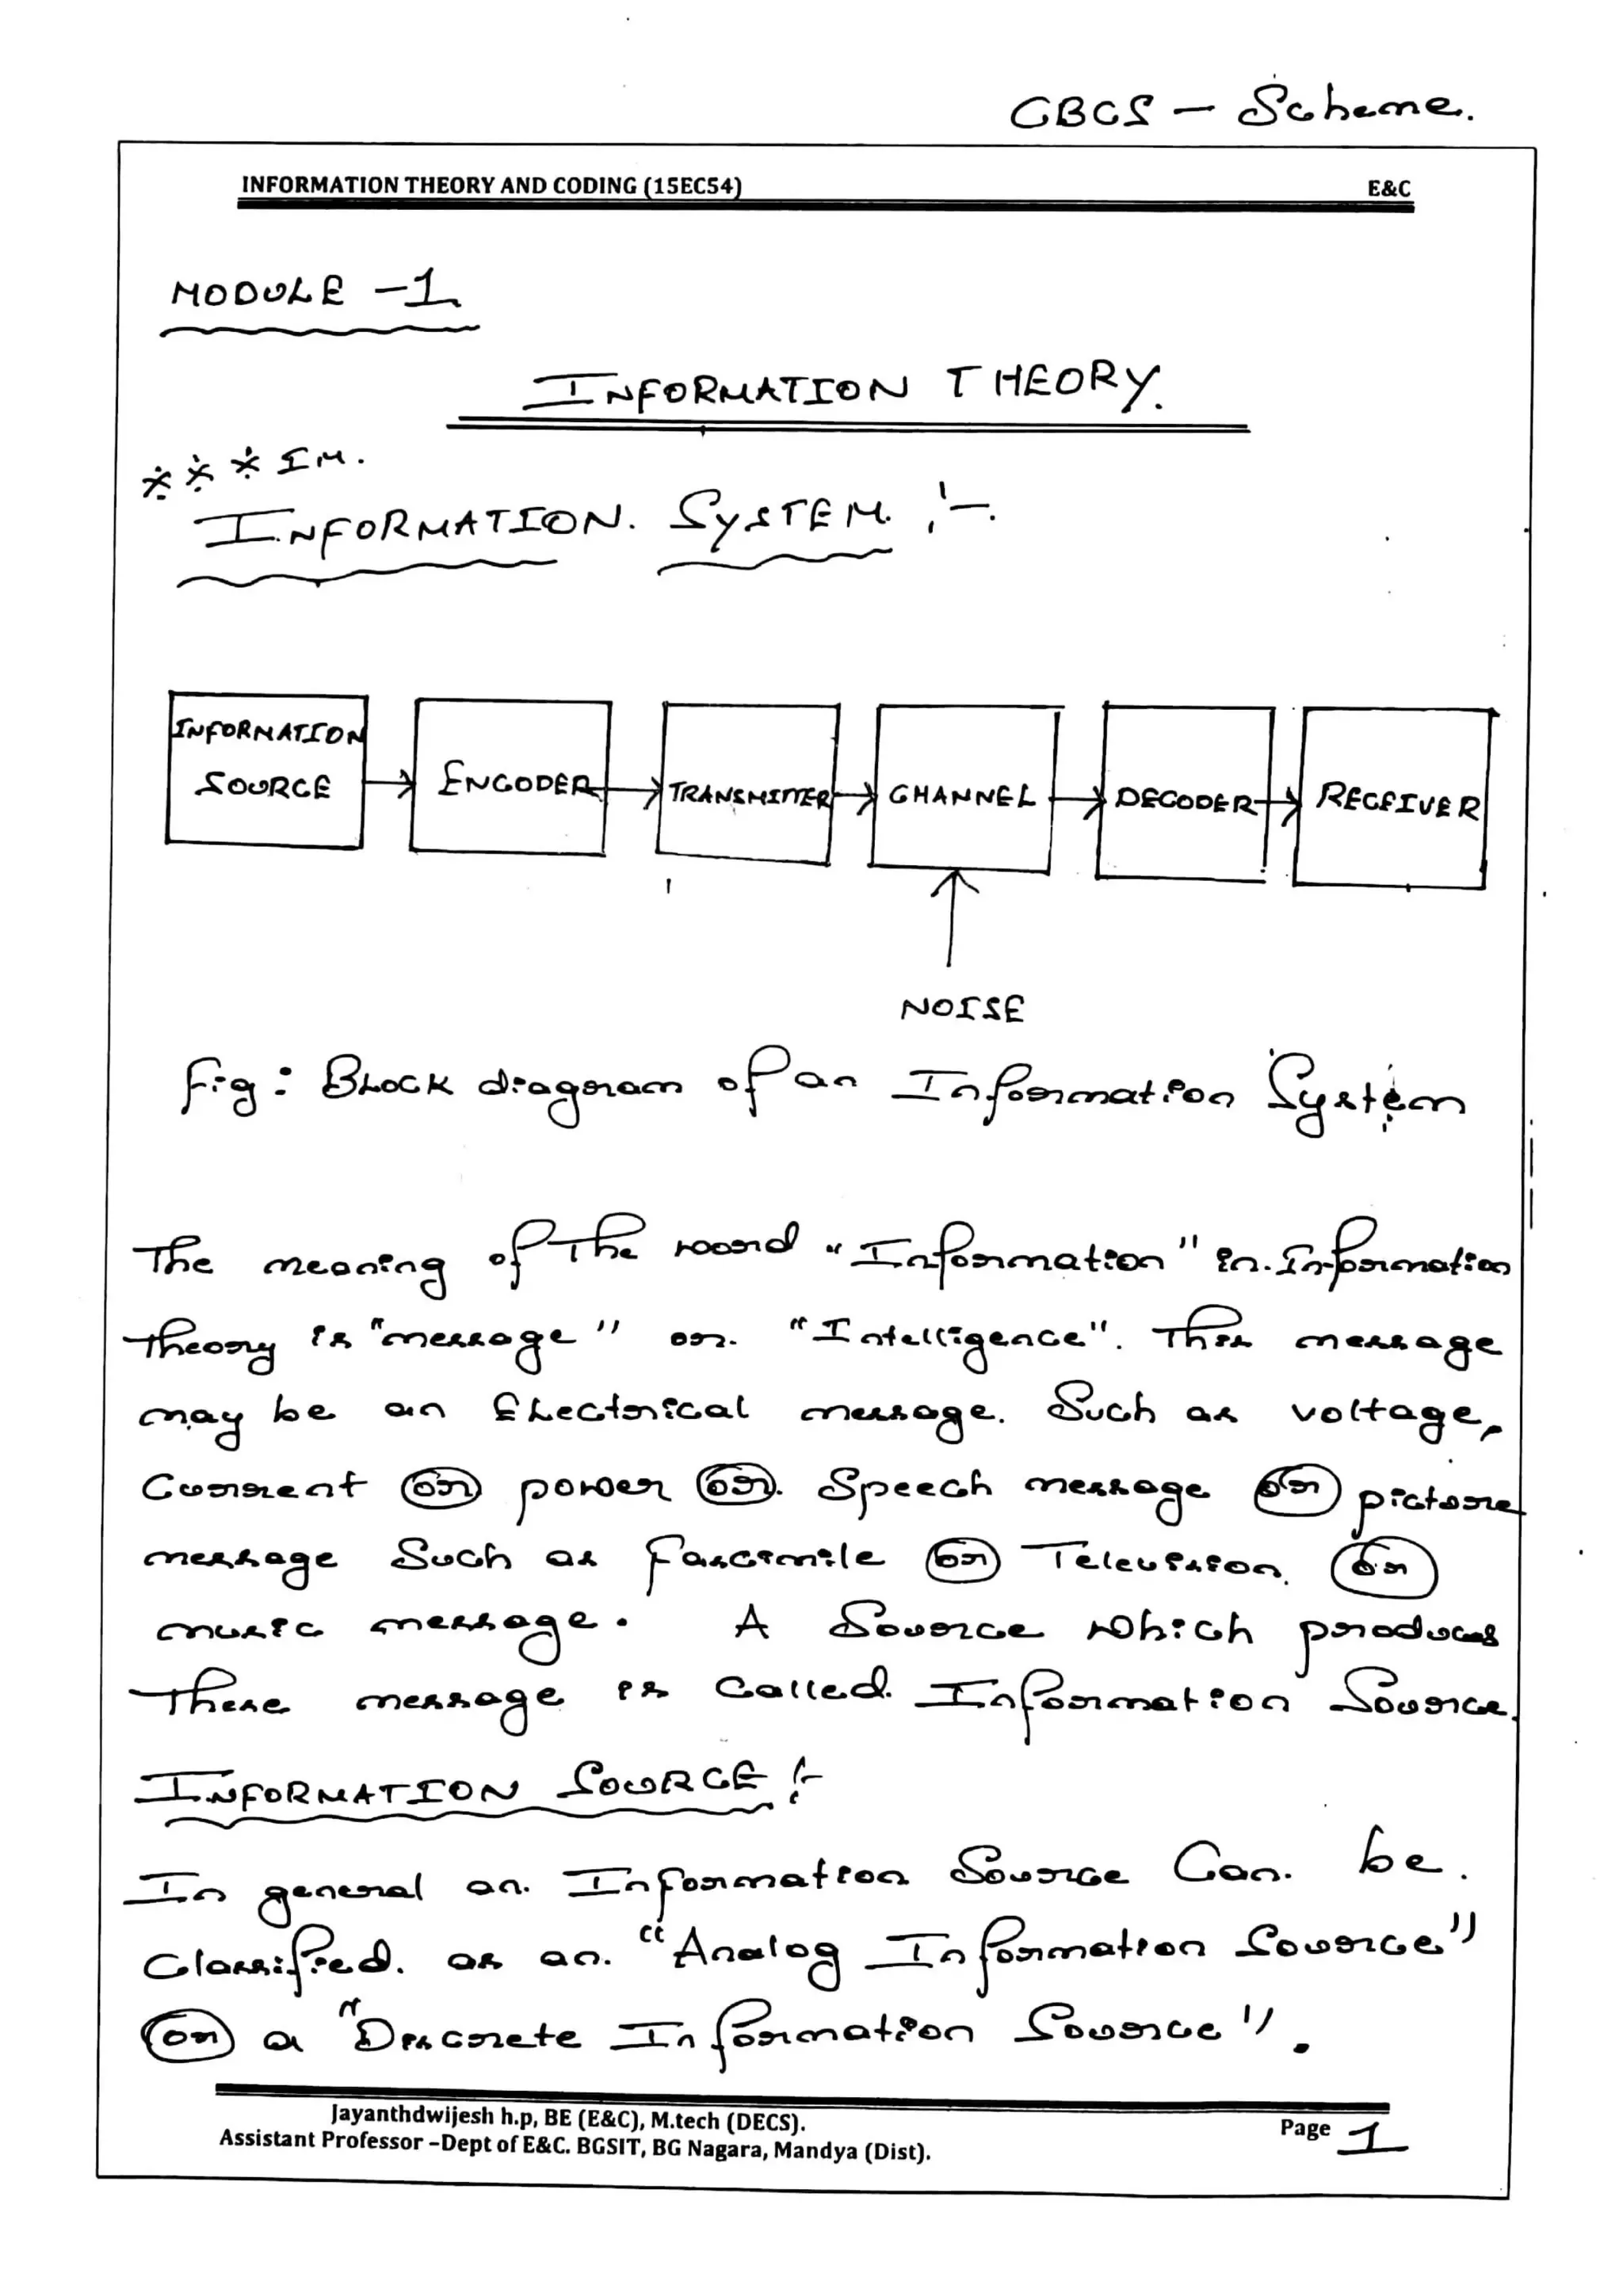 CBCS - Scheme.
INFORMATION THEORY AND CODING (15EC54) E&C
MODULE -1
INFORMATION THEORY.
*** IM.
INFORMATION. SYSTEM :-
INFORMATION
SOURCE
ENCODER
TRANSMITTER
CHANNEL
DECODER
RECEIVER
NOISE
Fig: BLOCK diagram of an Information System
The meaning of the word "Information" in Information
theory is "message" or "Intelligence". This message
may be an Electrical message. Such as voltage,
Current or power or Speech message or picture
message Such as fascimile or Television or
music message. A Source which produces
these message is Called Information Source.
INFORMATION SOURCE :-
In general an Information Source Can be.
Classified as an "Analog Information Source"
or a "Discrete Information Source".
Jayanthdwijesh h.p, BE (E&C), M.tech (DECS).
Assistant Professor -Dept of E&C. BGSIT, BG Nagara, Mandya (Dist).
Page 1